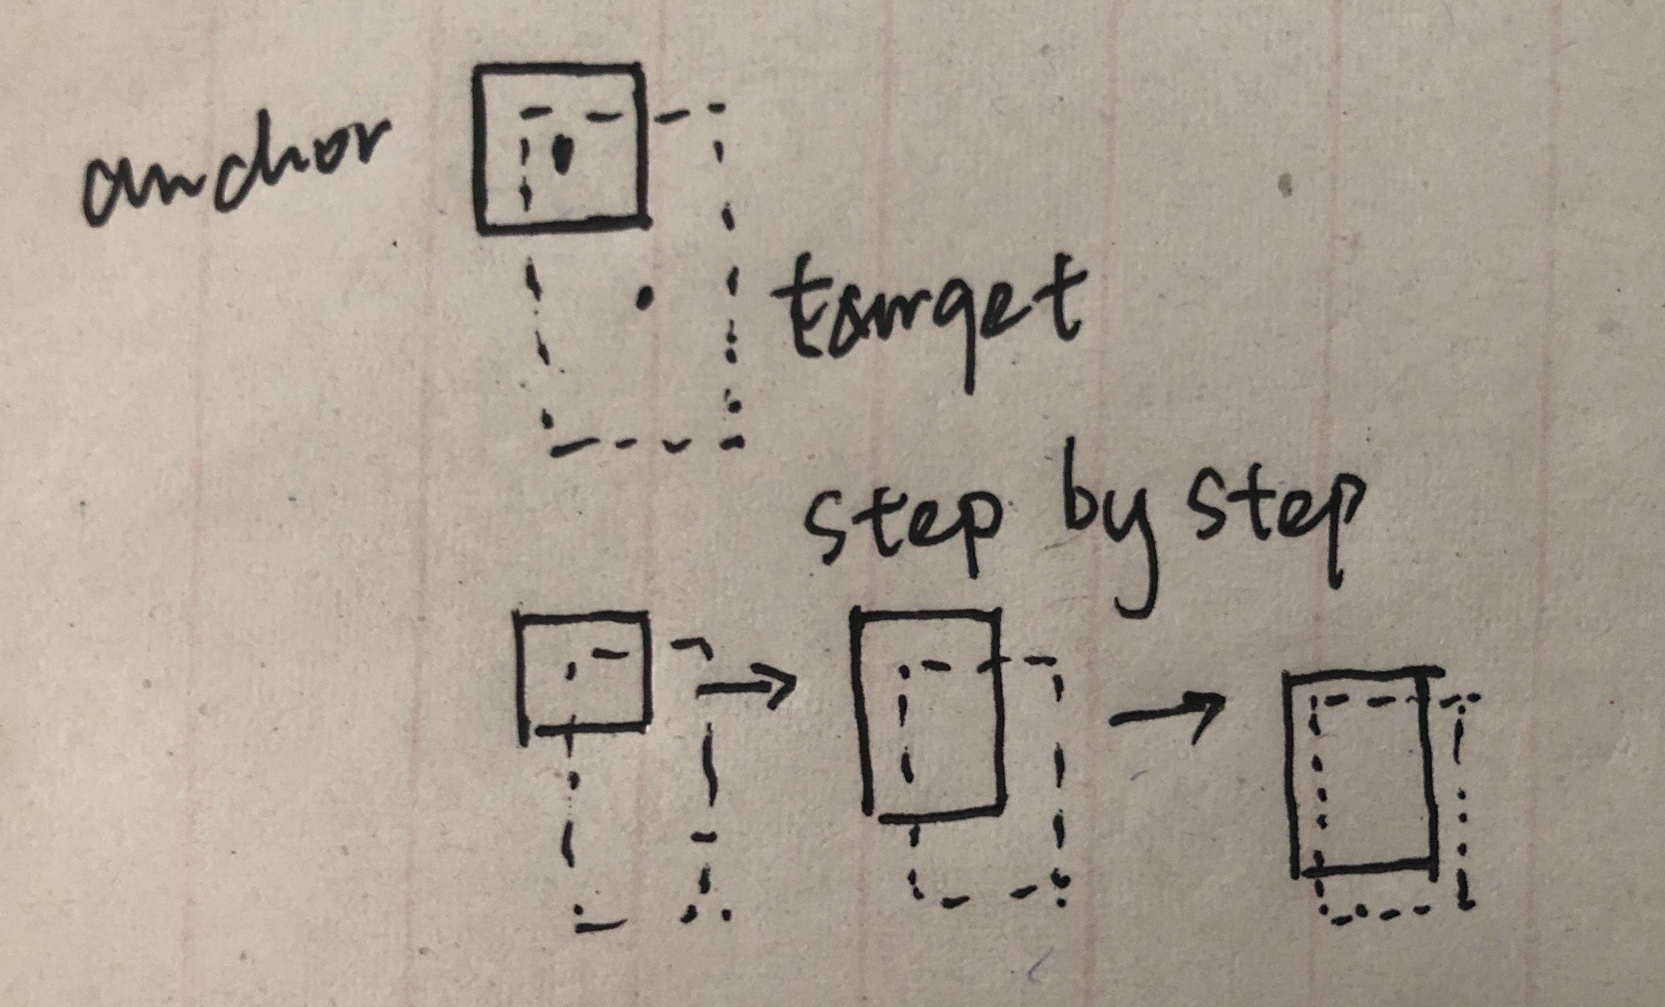 anchor
target
step by step